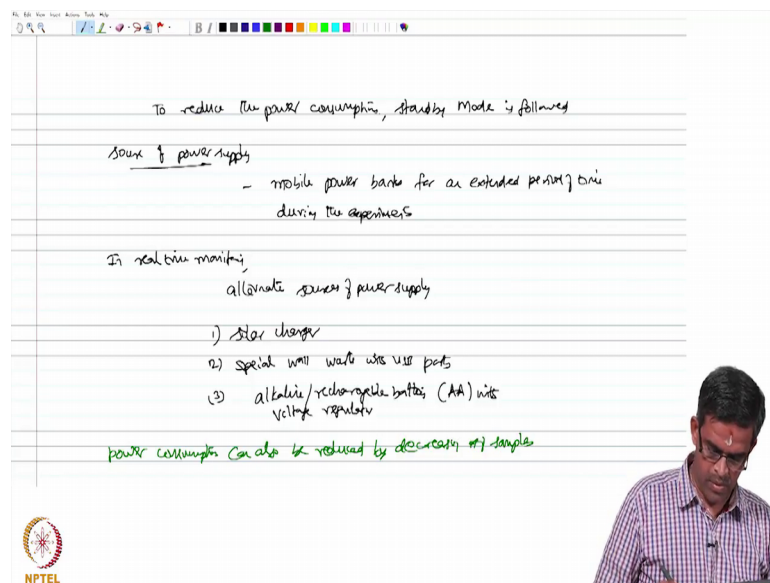 File Edit View Insert Actions Tools Help
To reduce the power consumption, standby Mode is followed
source of power supply
- mobile power banks for an extended period of time
during the experiments
In real time monitoring,
alternate sources of power supply
1) solar charger
2) special wall warts with USB ports
(3) alkaline/rechargeable batteries (AA) with
voltage regulator
power consumption can also be reduced by decreasing of samples
NPTEL